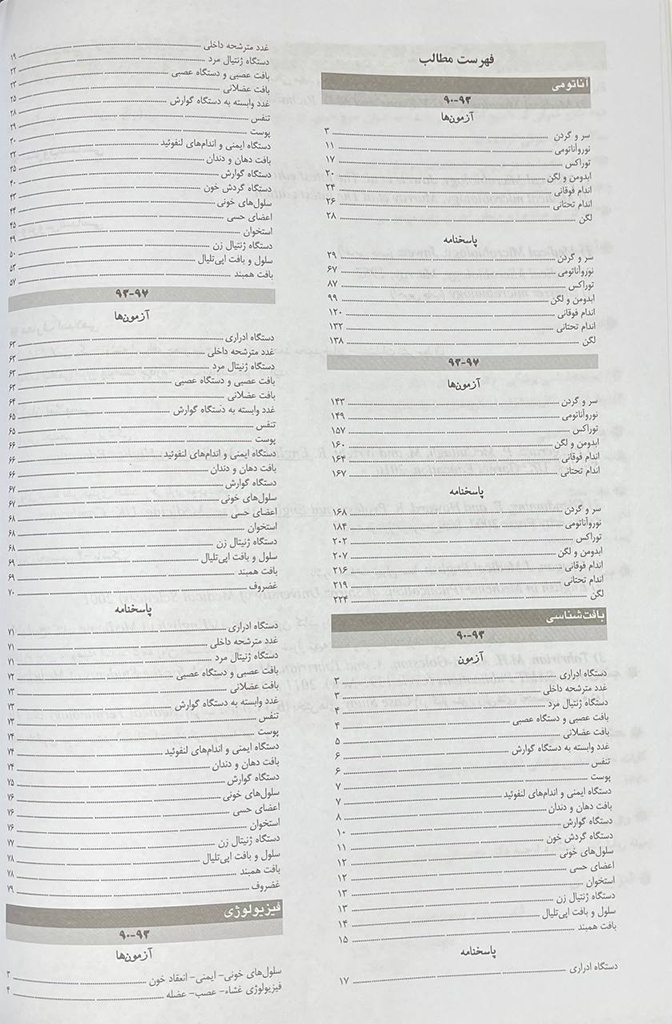 فهرست مطالب
آناتومی
۹۰-۹۳
آزمون‌ها
سر و گردن ۳
نوروآناتومی ۱۱
توراکس ۱۷
ابدومن و لگن ۲۰
اندام فوقانی ۲۴
اندام تحتانی ۲۶
لگن ۲۸
پاسخنامه
سر و گردن ۲۹
نوروآناتومی ۶۷
توراکس ۸۷
ابدومن و لگن ۹۹
اندام فوقانی ۱۲۰
اندام تحتانی ۱۳۲
لگن ۱۳۸
۹۳-۹۷
آزمون‌ها
سر و گردن ۱۴۳
نوروآناتومی ۱۴۹
توراکس ۱۵۷
ابدومن و لگن ۱۶۰
اندام فوقانی ۱۶۴
اندام تحتانی ۱۶۷
پاسخنامه
سر و گردن ۱۶۸
نوروآناتومی ۱۸۴
توراکس ۲۰۲
ابدومن و لگن ۲۰۷
اندام فوقانی ۲۱۶
اندام تحتانی ۲۱۹
لگن ۲۲۴
بافت‌شناسی
۹۰-۹۳
آزمون
دستگاه ادراری ۳
غدد مترشحه داخلی ۳
دستگاه ژنتیال مرد ۴
بافت عصبی و دستگاه عصبی ۴
بافت عضلانی ۵
غدد وابسته به دستگاه گوارش ۶
تنفس ۶
پوست ۷
دستگاه ایمنی و اندام‌های لنفوئید ۷
بافت دهان و دندان ۸
دستگاه گوارش ۱۰
دستگاه گردش خون ۱۱
سلول‌های خونی ۱۲
اعضای حسی ۱۲
استخوان ۱۳
دستگاه ژنتیال زن ۱۳
سلول و بافت اپی‌تلیال ۱۴
بافت همبند ۱۵
پاسخنامه
دستگاه ادراری ۱۷
غدد مترشحه داخلی ۱۹
دستگاه ژنتیال مرد ۲۲
بافت عصبی و دستگاه عصبی ۲۳
بافت عضلانی ۲۵
غدد وابسته به دستگاه گوارش ۲۸
تنفس ۲۹
پوست ۳۰
دستگاه ایمنی و اندام‌های لنفوئید ۳۲
بافت دهان و دندان ۳۵
دستگاه گوارش ۴۰
دستگاه گردش خون ۴۳
سلول‌های خونی ۴۴
اعضای حسی ۴۵
استخوان ۴۹
دستگاه ژنتیال زن ۵۰
سلول و بافت اپی‌تلیال ۵۳
بافت همبند ۵۷
۹۳-۹۷
آزمون‌ها
دستگاه ادراری ۶۳
غدد مترشحه داخلی ۶۳
دستگاه ژنیتال مرد ۶۳
بافت عصبی و دستگاه عصبی ۶۳
بافت عضلانی ۶۴
غدد وابسته به دستگاه گوارش ۶۵
تنفس ۶۵
پوست ۶۶
دستگاه ایمنی و اندام‌های لنفوئید ۶۶
بافت دهان و دندان ۶۶
دستگاه گوارش ۶۷
سلول‌های خونی ۶۷
اعضای حسی ۶۸
استخوان ۶۸
دستگاه ژنیتال زن ۶۸
سلول و بافت اپی‌تلیال ۶۹
بافت همبند ۶۹
غضروف ۷۰
پاسخنامه
دستگاه ادراری ۷۱
غدد مترشحه داخلی ۷۱
دستگاه ژنیتال مرد ۷۱
بافت عصبی و دستگاه عصبی ۷۲
بافت عضلانی ۷۳
غدد وابسته به دستگاه گوارش ۷۳
تنفس ۷۳
پوست ۷۴
دستگاه ایمنی و اندام‌های لنفوئید ۷۴
بافت دهان و دندان ۷۴
دستگاه گوارش ۷۵
سلول‌های خونی ۷۶
اعضای حسی ۷۶
استخوان ۷۶
دستگاه ژنیتال زن ۷۷
سلول و بافت اپی‌تلیال ۷۸
بافت همبند ۷۸
غضروف ۷۹
فیزیولوژی
۹۰-۹۳
آزمون‌ها
سلول‌های خونی- ایمنی- انعقاد خون ۳
فیزیولوژی غشاء- عصب- عضله ۴